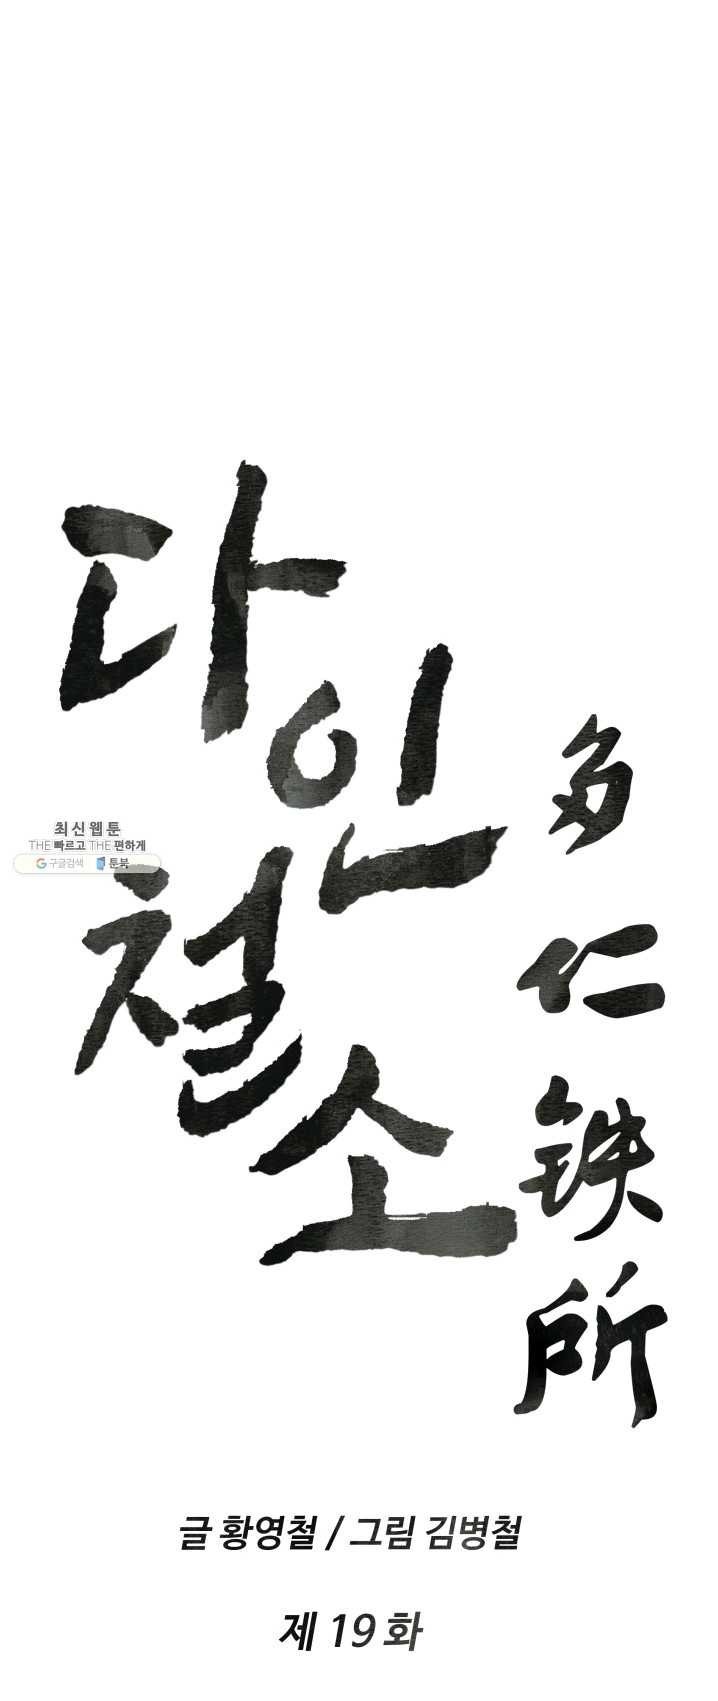 다인
철소
多仁鉄所
최신웹툰
THE 빠르고 THE 편하게
구글검색 툰북
글 황영철 / 그림 김병철
제 19 화